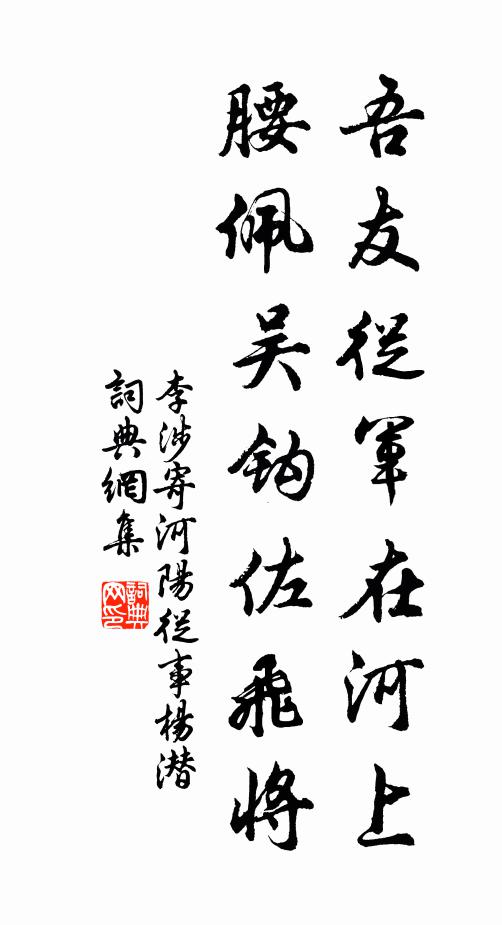 吾友從軍在河上
腰佩吴鈎佐飛將
李涉寄河陽從事楊潜
詞典網集
詞典
网印